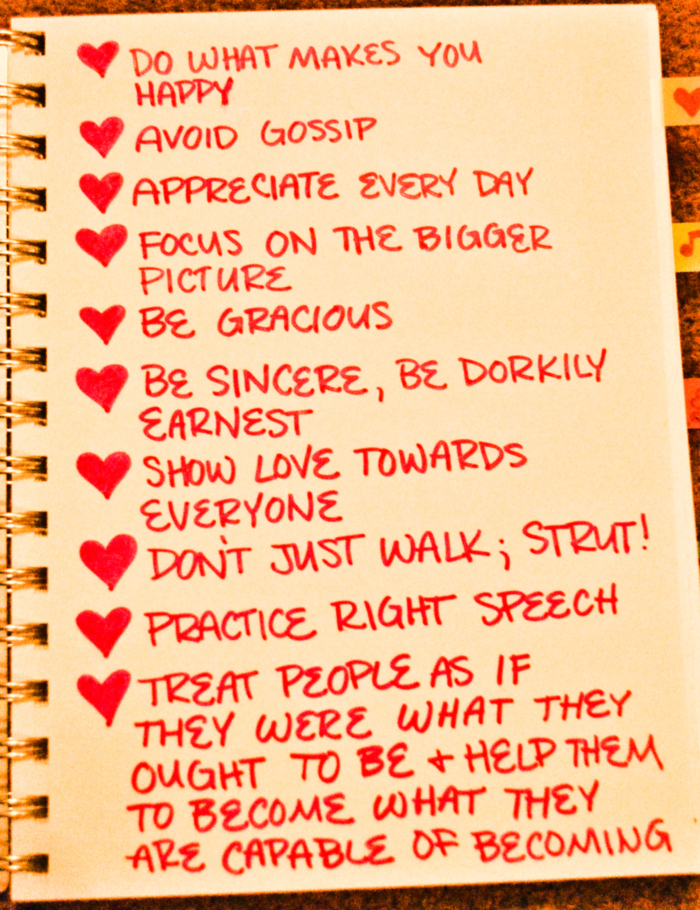 DO WHAT MAKES YOU
HAPPY
AVOID GOSSIP
APPRECIATE EVERY DAY
FOCUS ON THE BIGGER
PICTURE
BE GRACIOUS
BE SINCERE, BE DORKILY
EARNEST
SHOW LOVE TOWARDS
EVERYONE
DON'T JUST WALK; STRUT!
PRACTICE RIGHT SPEECH
TREAT PEOPLE AS IF
THEY WERE WHAT THEY
OUGHT TO BE + HELP THEM
TO BECOME WHAT THEY
ARE CAPABLE OF BECOMING